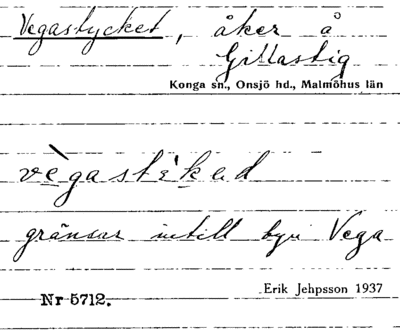 Vegastycket, åker å
Gillastig
Konga sn., Onsjö hd., Malmöhus län
vègastỳkad
gränsar intill byn Vega
Erik Jehpsson 1937
Nr 5712.